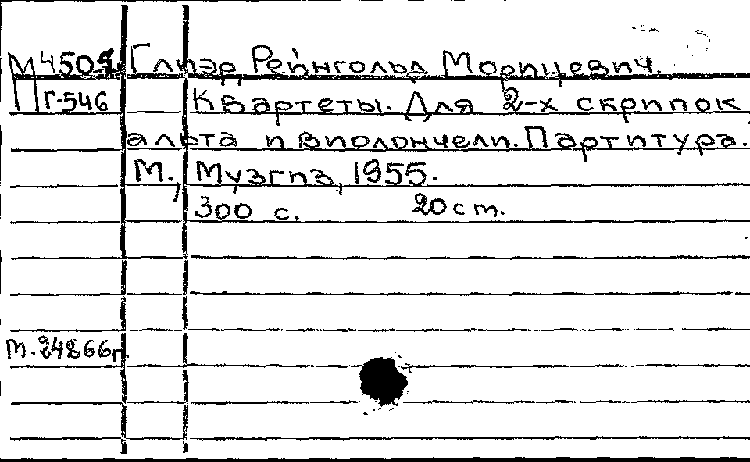 М4501 Глиэр, Рейнгольд Морицевич.
Г-546 Квартеты. Для 2-х скрипок,
альта и виолончели. Партитура.
М., Музгиз, 1955.
300 с. 20 см.
М.24266г.